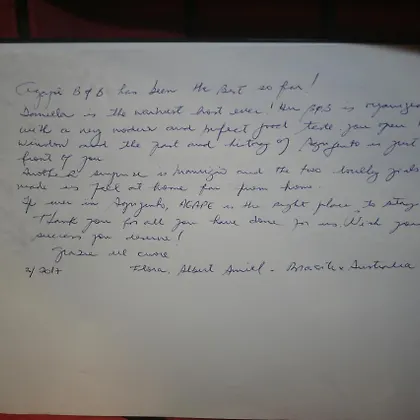 Agapè B&B has been the best so far!
Daniela is the warmest host ever! Her B&B is organized
with a very modern and perfect good taste. You open
window and the past and history of Agrigento is just
front of you
Another surprise is Maurizio and the two lovely
made us feel at home far from home.
If ever in Agrigento, AGAPE is the right place to stay
Thank you for all you have done for us. Wish you
success you deserve!
Grazie di cuore
2/2017 Flora, Albert Amiel - Brasile x Australia